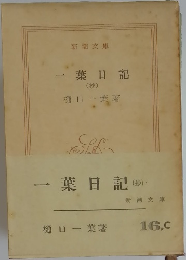 新潮文庫
一葉日記
樋口一葉著
一葉日記
新潮文庫
樋口一葉著
16.C